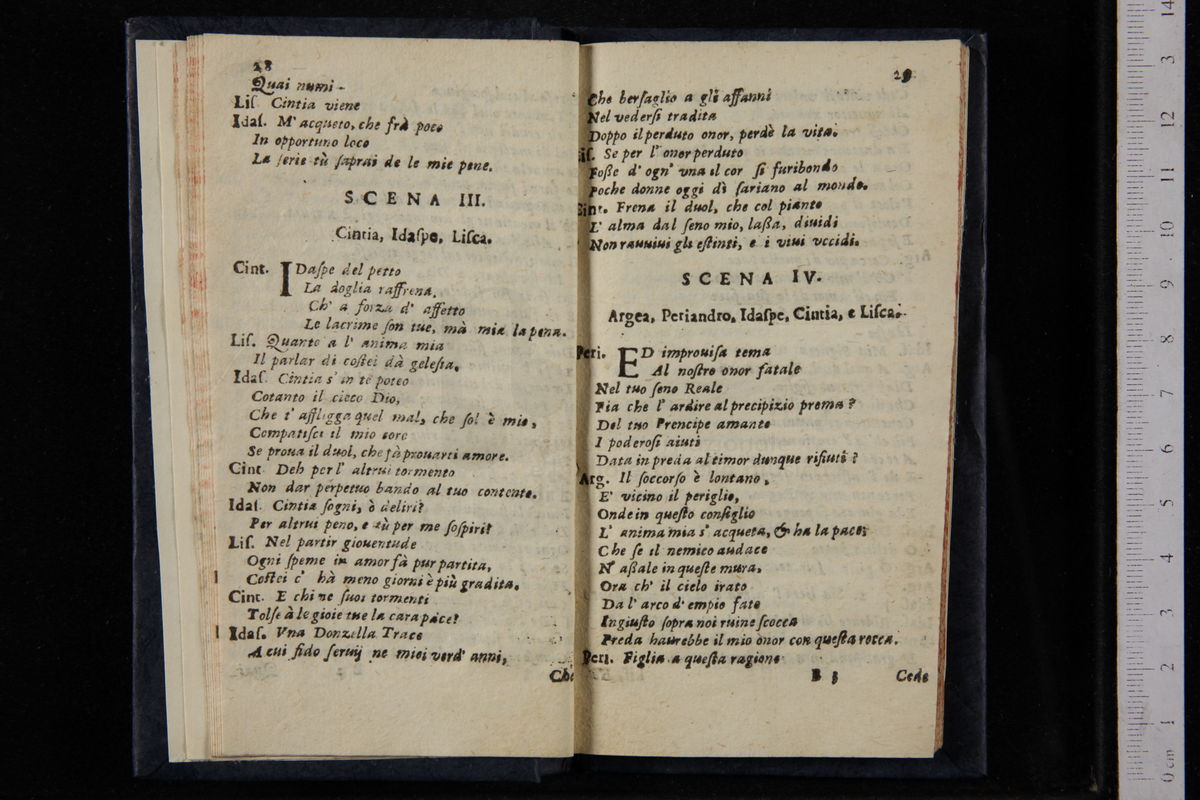 28
Quai numi -
Liſ. Cintia viene
Idaſ. M' acqueto, che frà poco
In opportuno loco
La ſerie tù ſaprai de le mie pene.
SCENA III.
Cintia, Idaſpe, Liſca.
Cint. IDaſpe del petto
La doglia raffrena,
Ch' a forza d' affetto
Le lacrime ſon tue, mà mia la pena.
Liſ. Quanto a l' anima mia
Il parlar di coſtei dà geleſia.
Idaſ. Cintia s' in te poteo
Cotanto il cieco Dio,
Che t' affligga quel mal, che ſol è mio,
Compatiſci il mio core
Se proua il duol, che fà prouarti amore.
Cint. Deh per l' altrui tormento
Non dar perpetuo bando al tuo contento.
Idaſ. Cintia ſogni, ò deliri?
Per altrui peno, e tù per me ſoſpiri?
Liſ. Nel partir giouentude
Ogni ſpeme in amor fà pur partita,
Coſtei c' hà meno giorni è più gradita.
Cint. E chi ne ſuoi tormenti
Tolſe à le gioie tue la cara pace?
Idaſ. Vna Donzella Trace
A cui fido ſeruij ne miei verd' anni,
Che
29
Che berſaglio a gli affanni
Nel vederſi tradita
Doppo il perduto onor, perdè la vita.
Liſ. Se per l' onor perduto
Foſſe d' ogn' vna il cor ſi furibondo
Poche donne oggi dì ſariano al mondo.
Cint. Frena il duol, che col pianto
L' alma dal ſeno mio, laſſa, diuidi
Non rauuiui gli eſtinti, e i viui vccidi.
SCENA IV.
Argea, Periandro, Idaſpe, Cintia, e Liſca.
Peri. ED improuiſa tema
Al noſtro onor fatale
Nel tuo ſeno Reale
Fia che l' ardire al precipizio prema?
Del tuo Prencipe amante
I poderoſi aiuti
Data in preda al timor dunque rifiuti?
Arg. Il ſoccorſo è lontano,
E' vicino il periglio,
Onde in queſto conſiglio
L' anima mia s' acqueta, & ha la pace;
Che ſe il nemico audace
N' aſſale in queſte mura,
Ora ch' il cielo irato
Da l' arco d' empio fato
Ingiuſto ſopra noi ruine ſcocca
Preda haurebbe il mio onor con queſta rocca.
Peri. Figlia a queſta ragione
B 3 Cede